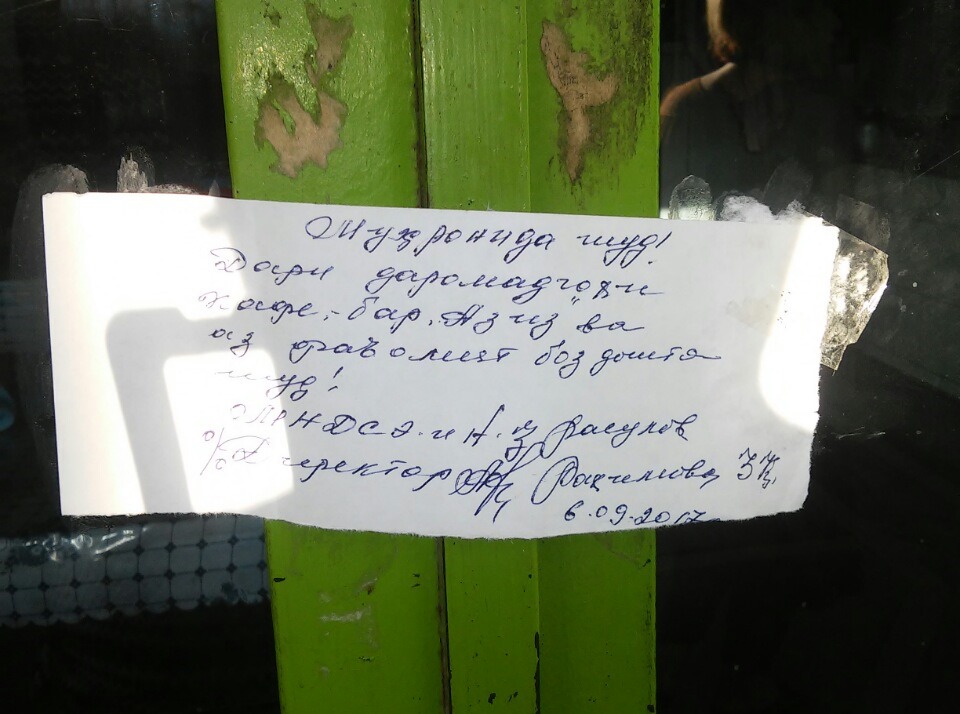 Муҳронида шуд!
Дари даромадгоҳи
Кафе,-бар „Азиз" ва
аз фаъолият боз дошта
шуд!
МРНДСЭ ж. Расулов
Директор Раҳимова З
6.09.2017